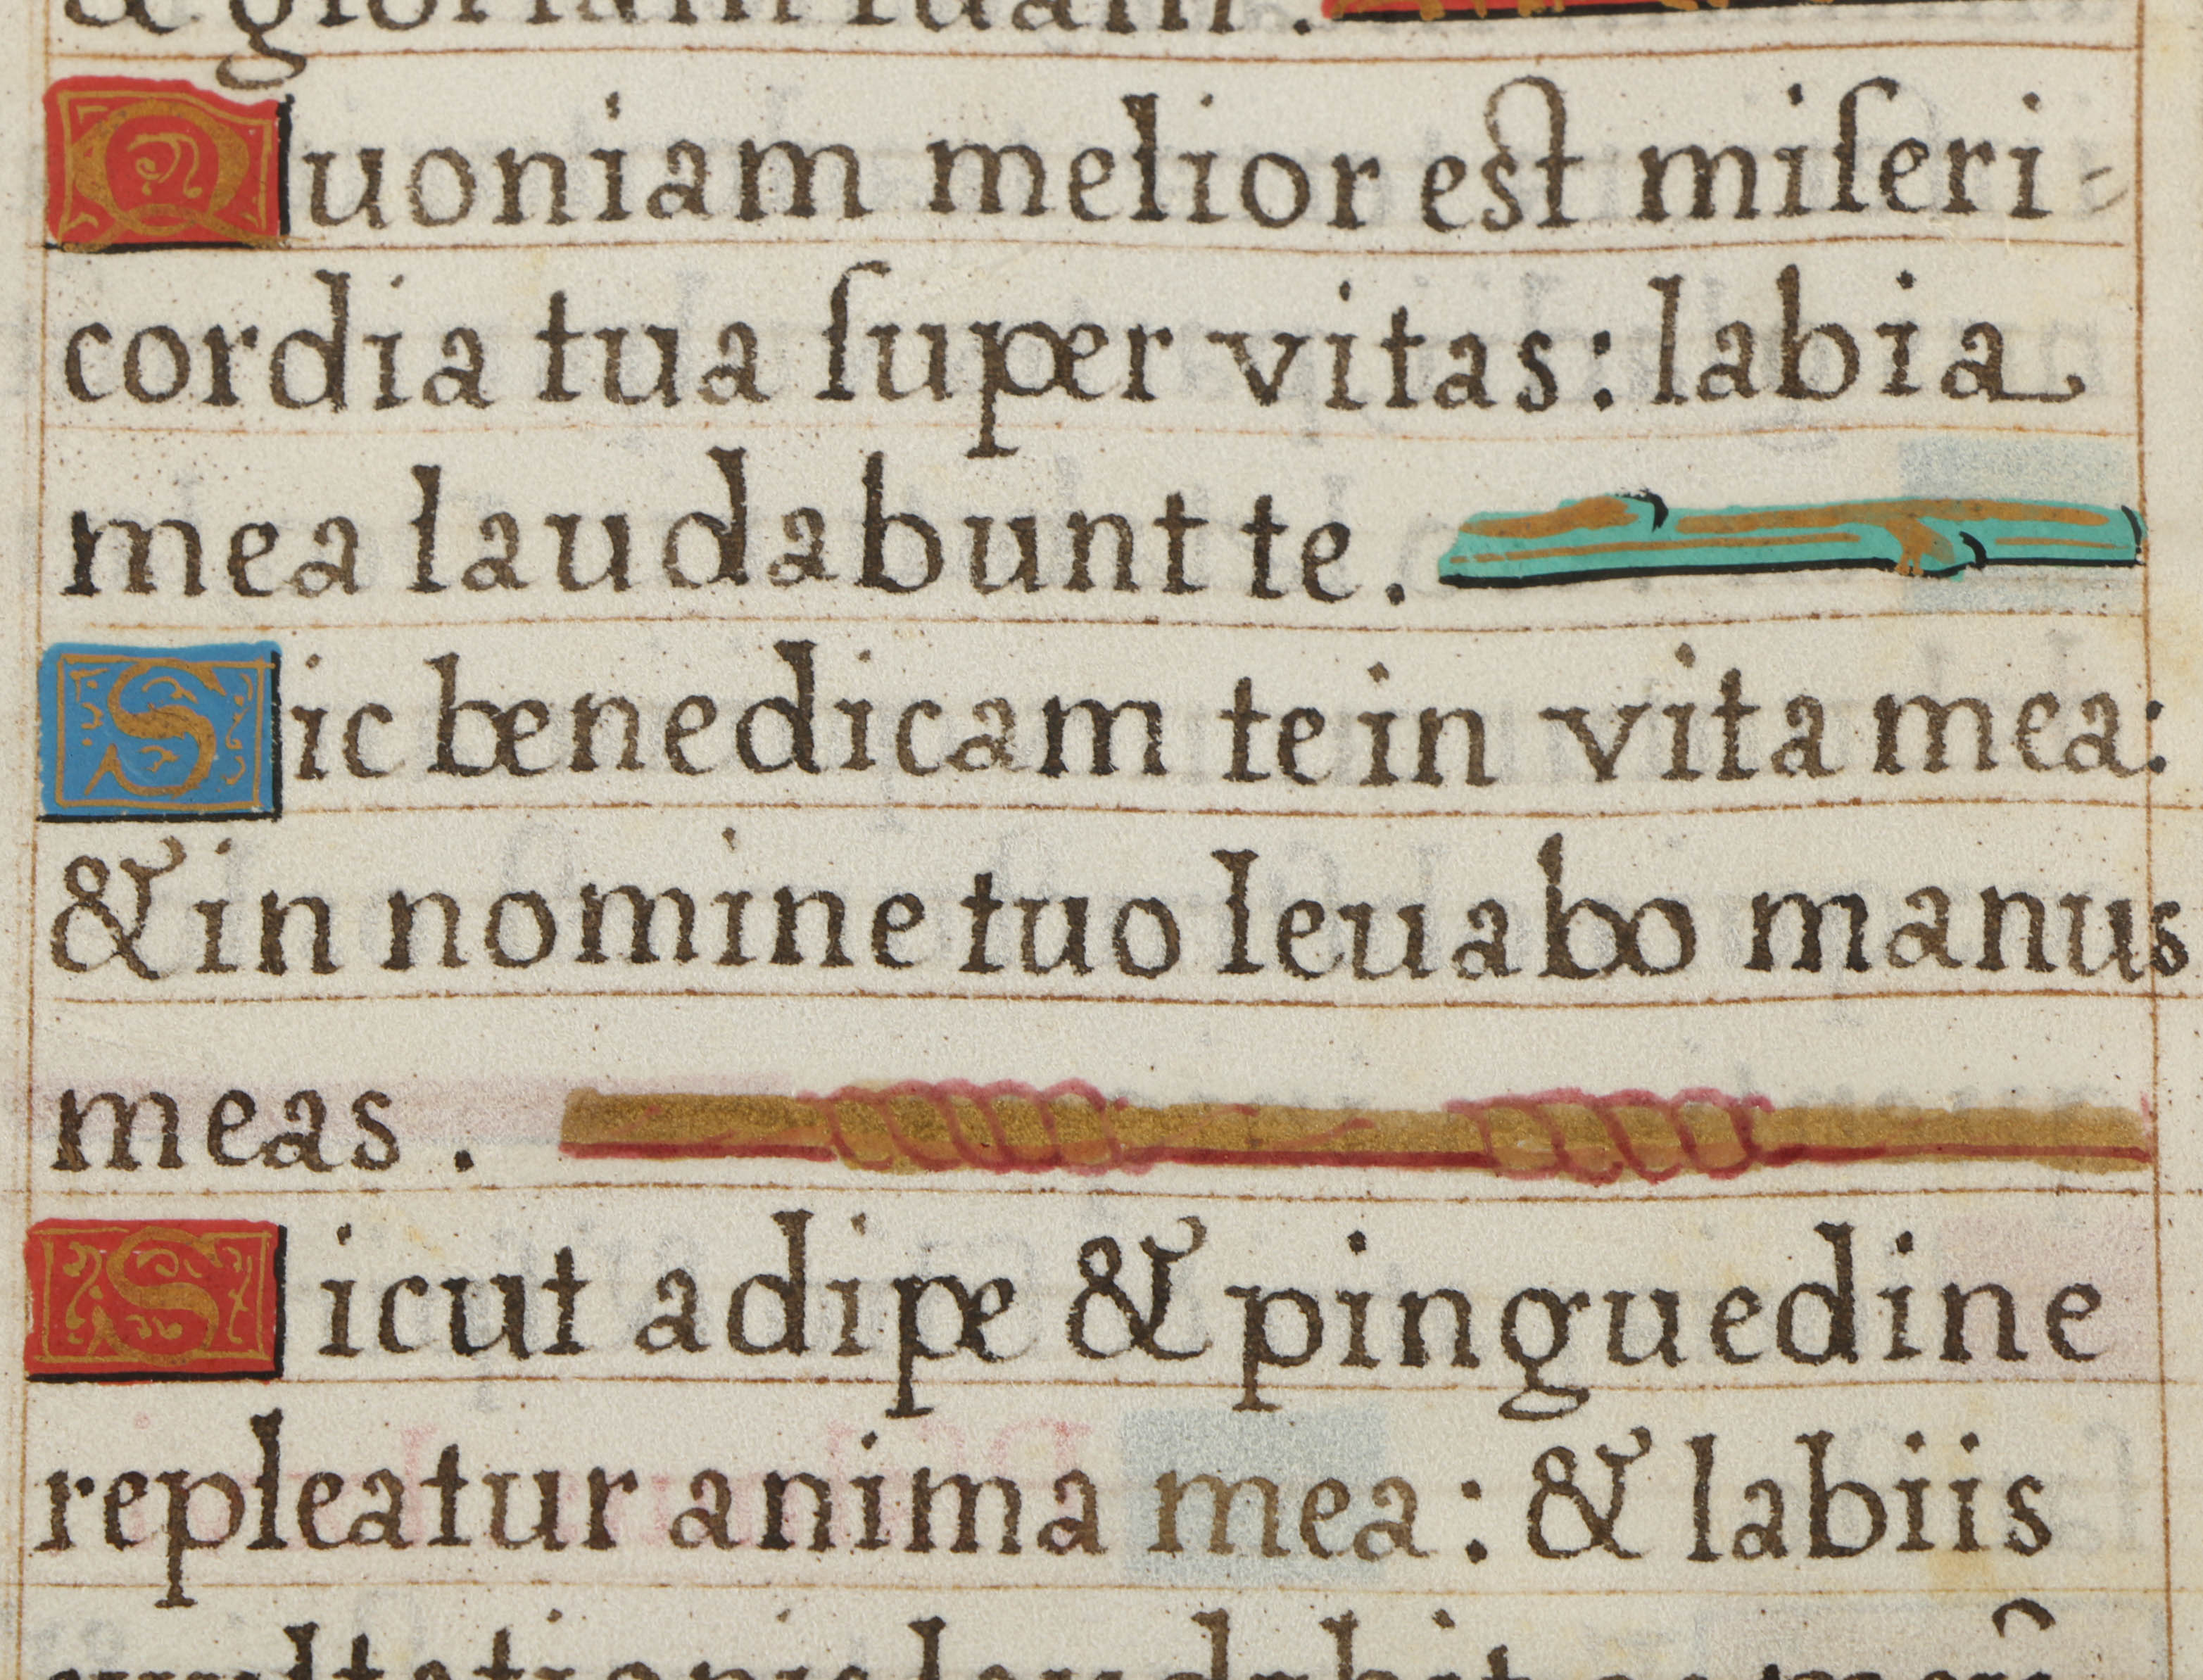 & gloriam tuam.
Quoniam melior est miſeri-
cordia tua ſuper vitas: labia
mea laudabunt te.
Sic benedicam te in vita mea:
& in nomine tuo leuabo manus
meas.
Sicut adipe & pinguedine
repleatur anima mea: & labiis
exultationis laudabit os meū